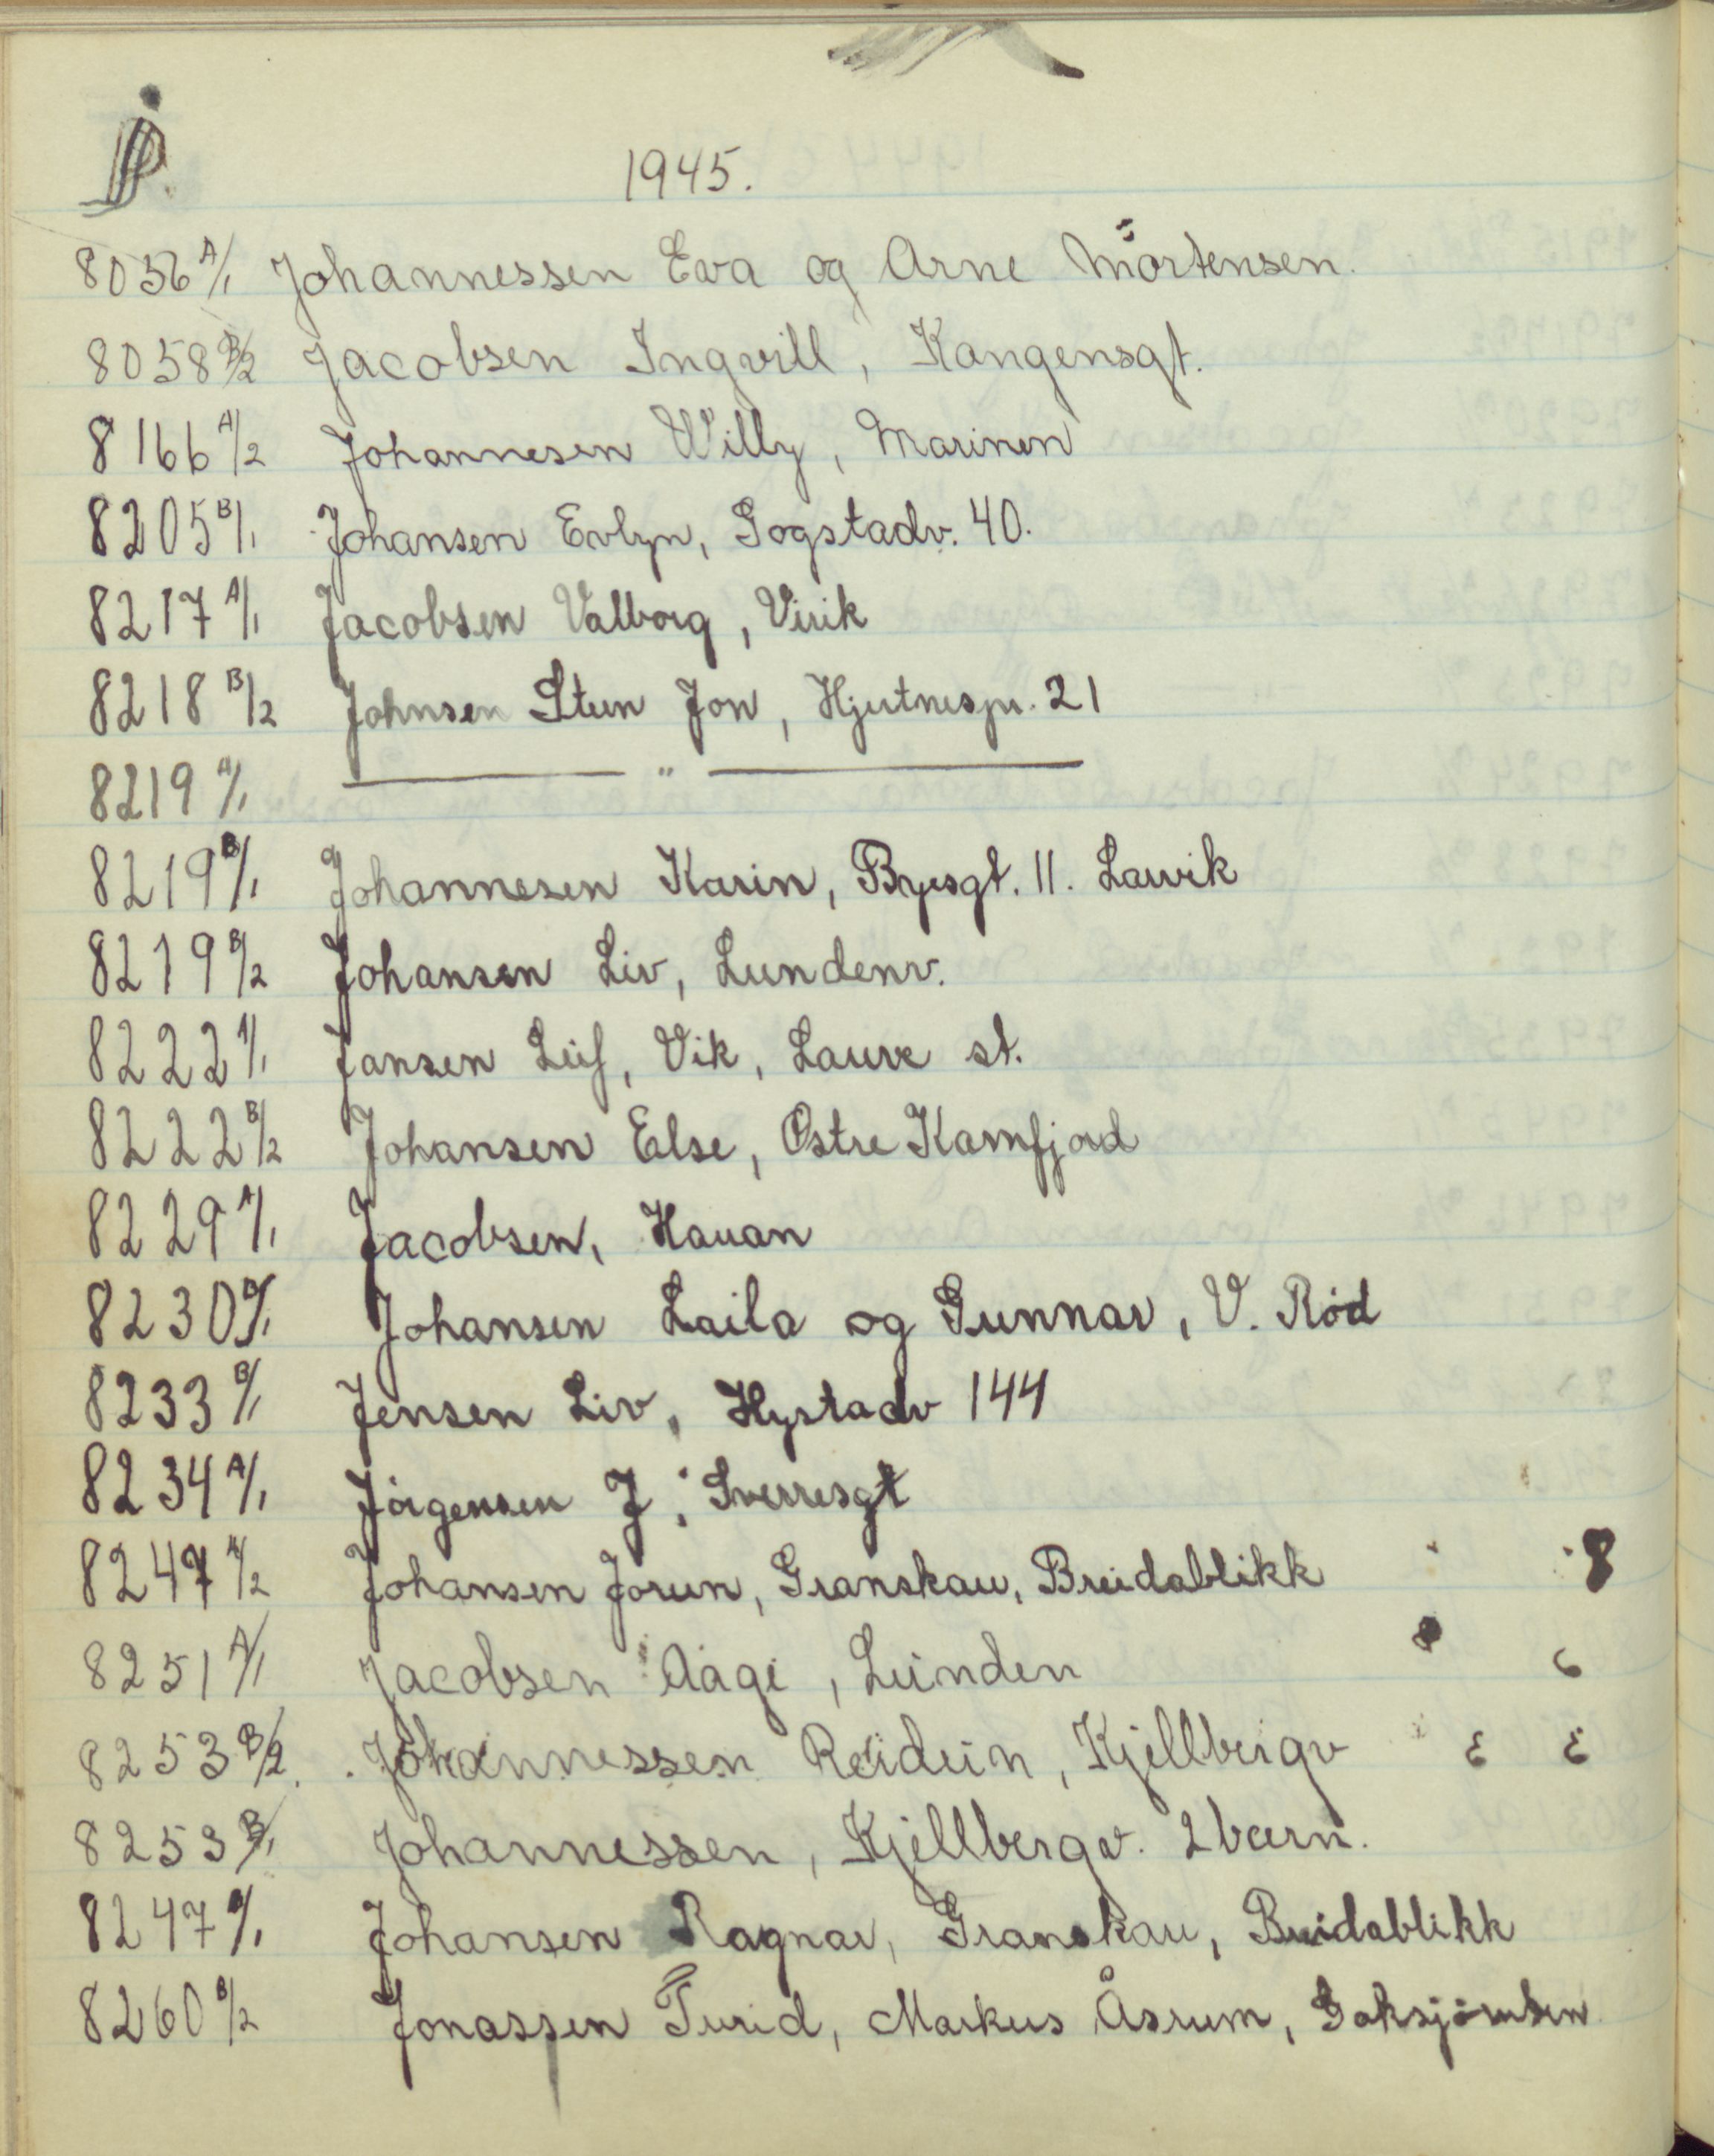 J.
1945.
8056 A/1 Johannessen Eva og Arne Mortensen.
8058 B/2 Jacobsen Ingvill, Kangensgt.
8166 A/2 Johannesen Willy, Marinen
8205 B/1 Johansen Evlyn, Gogstadv. 40.
8217 A/1 Jacobsen Valborg, Virik
8218 B/2 Johnsen Stein Jon, Hjertnespr. 21
8219 A/1 — " —
8219 B/1 Johannesen Karin, Bryesgt. 11. Larvik
8219 B/2 Johansen Liv, Lundenv.
8222 A/1 Jansen Leif, Vik, Lauve st.
8222 B/2 Johansen Else, Østre Kamfjord
8229 A/1 Jacobsen, Hauan
8230 B/1 Johansen Laila og Gunnar, V. Rød
8233 B/1 Jensen Liv, Hystadv 144
8234 A/1 Jörgensen J, Sverresgt
8247 A/2 Johansen Jorun, Granskau, Breidablikk
8251 A/1 Jacobsen Aage, Lunden
8253 B/2. Johannessen Reidun, Kjellbergv
8253 B/1 Johannessen, Kjellbergv. 2 barn.
8247 A/1 Johansen Ragnar, Granskau, Breidablikk
8260 B/2 Jonassen Turid, Markus Åsrum,